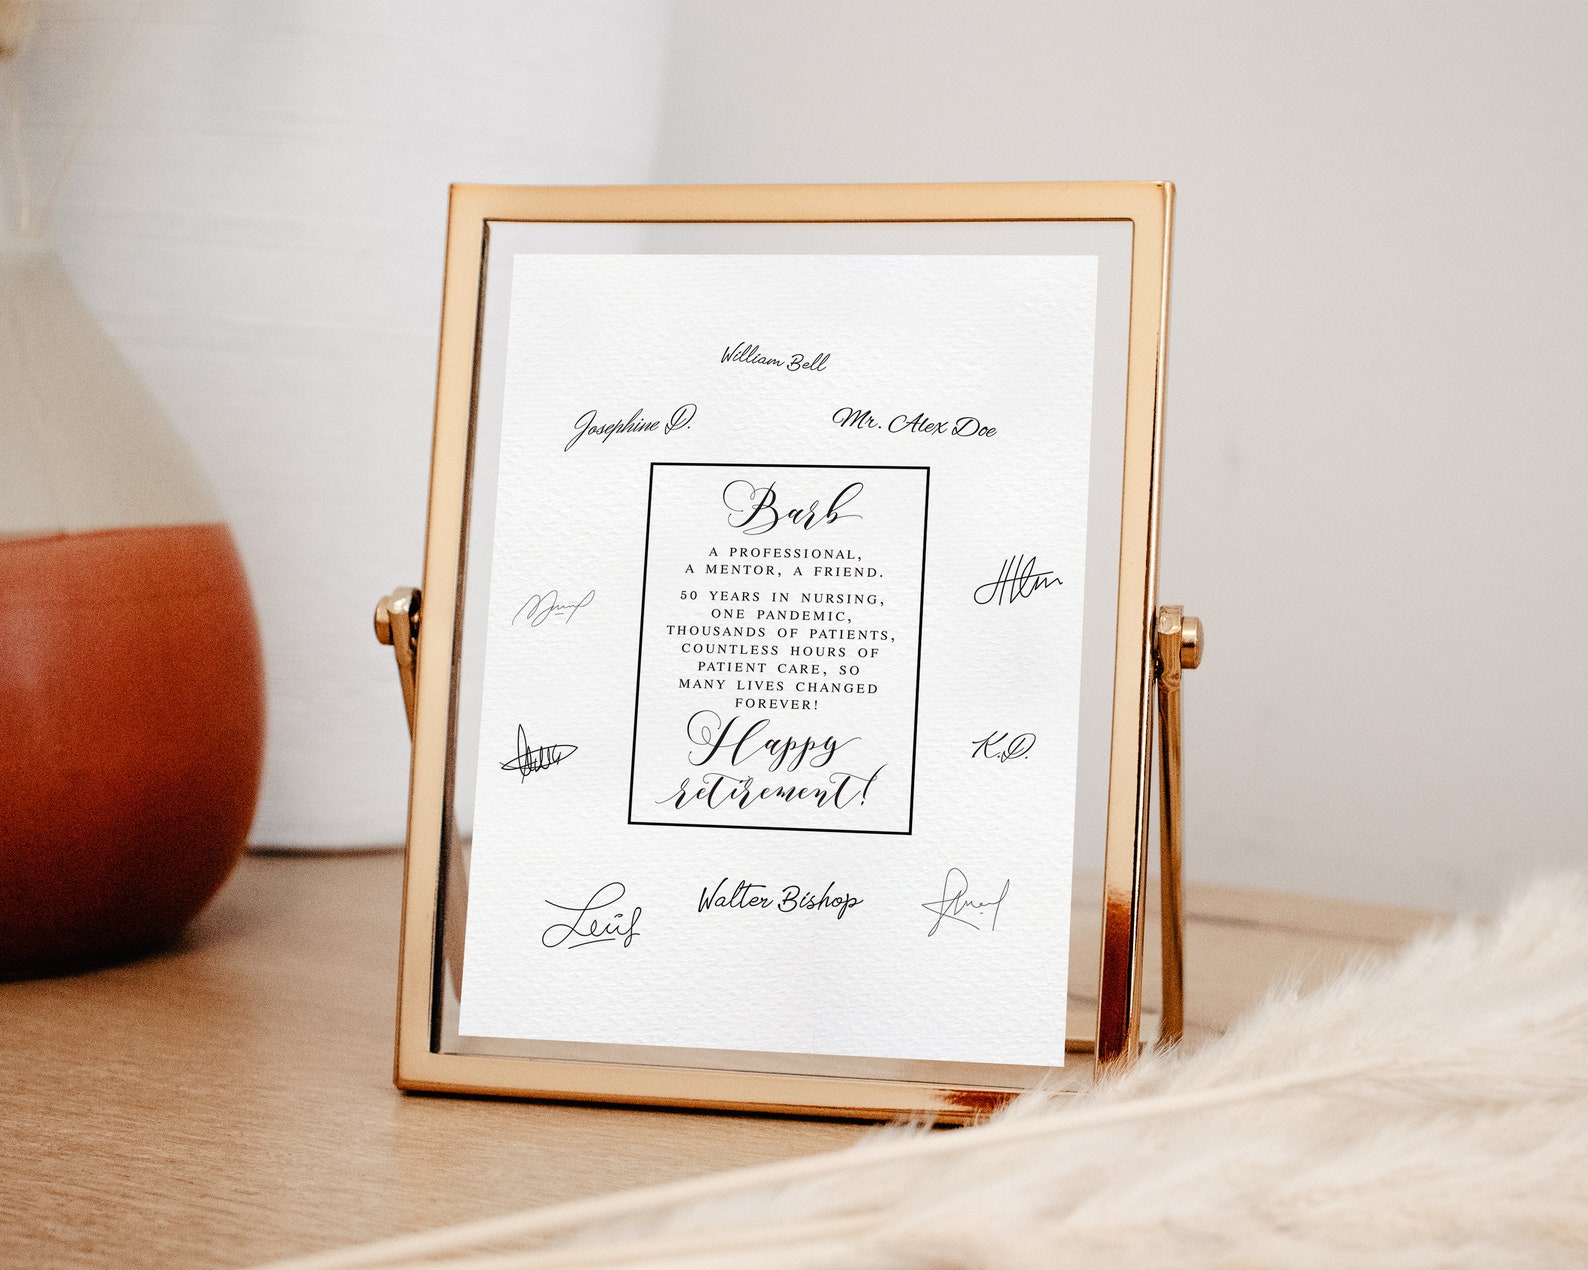 William Bell
Josephine D.
Mr. Alex Doe
Barb
A PROFESSIONAL,
A MENTOR, A FRIEND.
50 YEARS IN NURSING,
ONE PANDEMIC,
THOUSANDS OF PATIENTS,
COUNTLESS HOURS OF
PATIENT CARE, SO
MANY LIVES CHANGED
FOREVER!
Happy
retirement!
K.D.
Walter Bishop